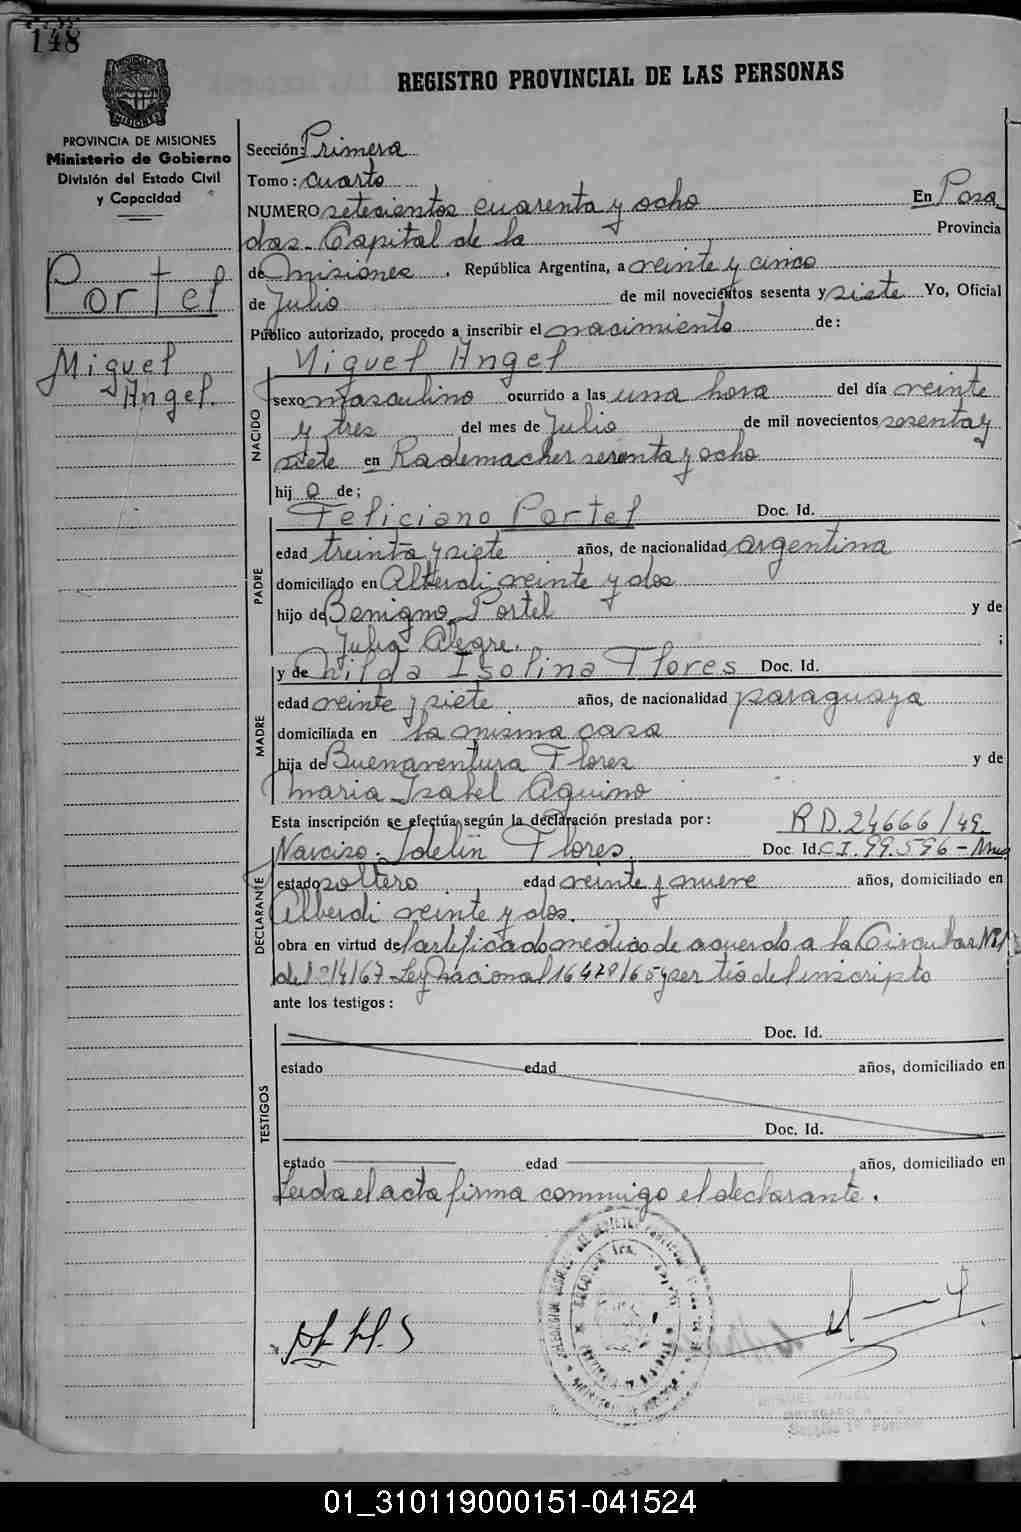 148
REGISTRO PROVINCIAL DE LAS PERSONAS
PROVINCIA DE MISIONES
Ministerio de Gobierno
División del Estado Civil
y Capacidad
Portel
Miguel
Angel.
Sección: Primera
Tomo: cuarto
NUMERO setecientos cuarenta y ocho En Posa
das - Capital de la Provincia
de Misiones, República Argentina, a veinte y cinco
de Julio de mil novecientos sesenta y siete Yo, Oficial
Público autorizado, procedo a inscribir el nacimiento de:
NACIDO
Miguel Angel
sexo masculino ocurrido a las una hora del día veinte
y tres del mes de Julio de mil novecientos sesenta y
siete en Rademacher sesenta y ocho
hij o de;
PADRE
Feliciano Portel Doc. Id.
edad treinta y siete años, de nacionalidad argentina
domiciliado en Alberdi veinte y dos
hijo de Benigno Portel y de
Julia Alegre. ;
MADRE
y de Nilda Isolina Flores Doc. Id.
edad veinte y siete años, de nacionalidad paraguaya
domiciliada en la misma casa
hija de Buenaventura Flores y de
Maria Isabel Aquino
Esta inscripción se efectúa según la declaración prestada por: RD.24666/49
DECLARANTE
Narciso Idelin Flores. Doc. Id. C.I. 99.596 -
estado soltero edad veinte y nueve años, domiciliado en
Alberdi veinte y dos.
obra en virtud de Certificado médico de acuerdo a la Circular
del 3/4/67 - Ley nacional 16478/65 y ser tió del inscripto
ante los testigos:
TESTIGOS
Doc. Id.
estado edad años, domiciliado en
Doc. Id.
estado edad años, domiciliado en
Leida el acta firma conmmigo el declarante.
01_310119000151-041524